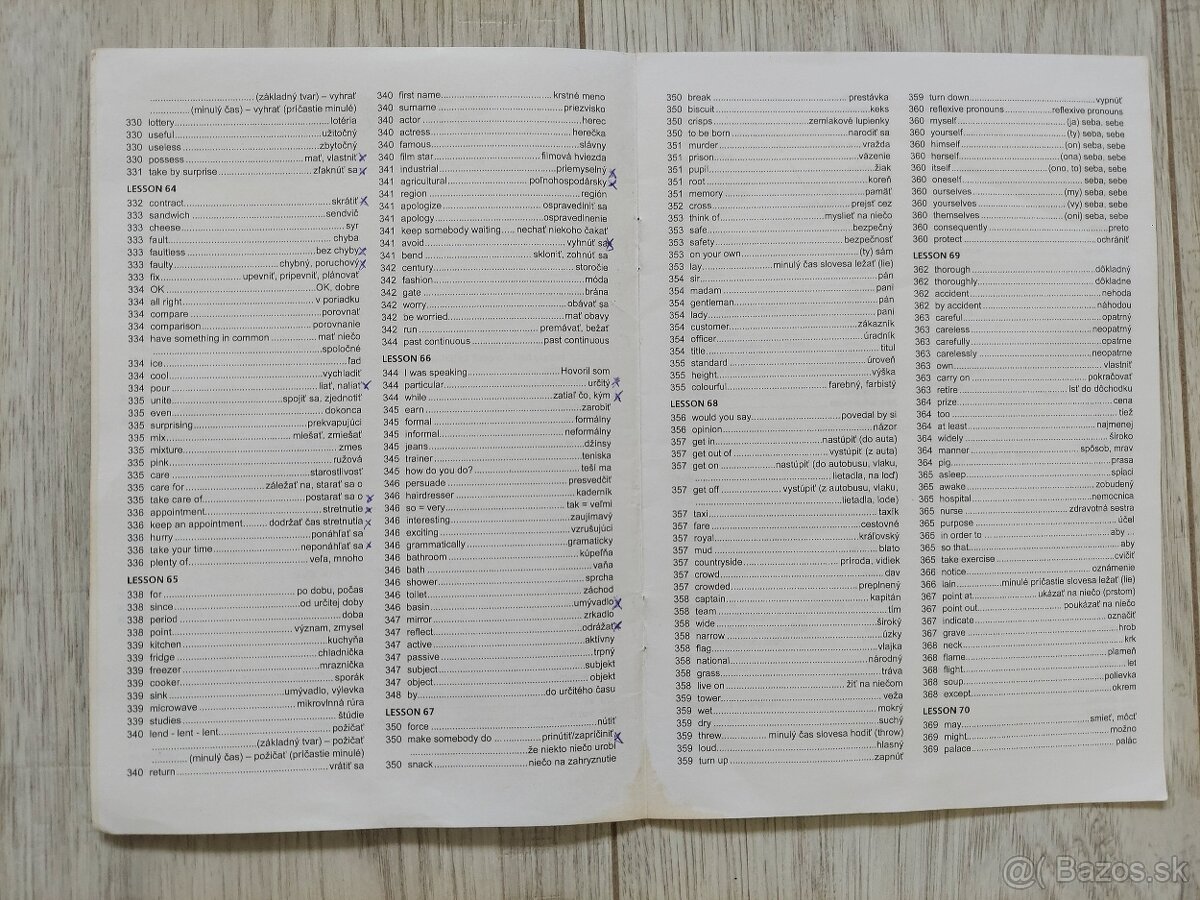 (základný tvar) – vyhrať
(minulý čas) – vyhrať (príčastie minulé)
330 lottery lotéria
330 useful užitočný
330 useless zbytočný
330 possess mať, vlastniť x
331 take by surprise zľaknúť sa x
LESSON 64
332 contract skrátiť x
333 sandwich sendvič
333 cheese syr
333 fault chyba
333 faultless bez chyby x
333 faulty chybný, poruchový x
333 fix upevniť, pripevniť, plánovať
334 OK OK, dobre
334 all right v poriadku
334 compare porovnať
334 comparison porovnanie
334 have something in common mať niečo
spoločné
334 ice ľad
334 cool vychladiť
334 pour liať, naliať x
335 unite spojiť sa, zjednotiť
335 even dokonca
335 surprising prekvapujúci
335 mix miešať, zmiešať
335 mixture zmes
335 pink ružová
335 care starostlivosť
335 care for záležať na, starať sa o
335 take care of postarať sa o x
336 appointment stretnutie x
336 keep an appointment dodržať čas stretnutia x
336 hurry ponáhľať sa
336 take your time neponáhľať sa x
336 plenty of veľa, mnoho
LESSON 65
338 for po dobu, počas
338 since od určitej doby
338 period doba
338 point význam, zmysel
339 kitchen kuchyňa
339 fridge chladnička
339 freezer mraznička
339 cooker sporák
339 sink umývadlo, výlevka
339 microwave mikrovlnná rúra
339 studies štúdie
340 lend - lent - lent požičať
(základný tvar) – požičať
(minulý čas) – požičať (príčastie minulé)
340 return vrátiť sa
340 first name krstné meno
340 surname priezvisko
340 actor herec
340 actress herečka
340 famous slávny
340 film star filmová hviezda
341 industrial priemyselný x
341 agricultural poľnohospodársky x
341 region región
341 apologize ospravedlniť sa
341 apology ospravedlnenie
341 keep somebody waiting nechať niekoho čakať
341 avoid vyhnúť sa x
341 bend skloniť, zohnúť sa
342 century storočie
342 fashion móda
342 gate brána
342 worry obávať sa
342 be worried mať obavy
342 run premávať, bežať
344 past continuous past continuous
LESSON 66
344 I was speaking Hovoril som
344 particular určitý x
344 while zatiaľ čo, kým x
345 earn zarobiť
345 formal formálny
345 informal neformálny
345 jeans džínsy
345 trainer teniska
345 how do you do? teší ma
346 persuade presvedčiť
346 hairdresser kaderník
346 so = very tak = veľmi
346 interesting zaujímavý
346 exciting vzrušujúci
346 grammatically gramaticky
346 bathroom kúpeľňa
346 bath vaňa
346 shower sprcha
346 toilet záchod
346 basin umývadlo x
347 mirror zrkadlo
347 reflect odrážať x
347 active aktívny
347 passive trpný
347 subject subjekt
347 object objekt
348 by do určitého času
LESSON 67
350 force nútiť
350 make somebody do prinútiť/zapríčiniť x
že niekto niečo urobí
350 snack niečo na zahryznutie
350 break prestávka
350 biscuit keks
350 crisps zemiakové lupienky
350 to be born narodiť sa
351 murder vražda
351 prison väzenie
351 pupil žiak
351 root koreň
351 memory pamäť
352 cross prejsť cez
353 think of myslieť na niečo
353 safe bezpečný
353 safety bezpečnosť
353 on your own (ty) sám
353 lay minulý čas slovesa ležať (lie)
354 sir pán
354 madam pani
354 gentleman pán
354 lady pani
354 customer zákazník
354 officer úradník
354 title titul
355 standard úroveň
355 height výška
355 colourful farebný, farbistý
LESSON 68
356 would you say povedal by si
356 opinion názor
357 get in nastúpiť (do auta)
357 get out of vystúpiť (z auta)
357 get on nastúpiť (do autobusu, vlaku,
lietadla, na loď)
357 get off vystúpiť (z autobusu, vlaku,
lietadla, lode)
357 taxi taxík
357 fare cestovné
357 royal kráľovský
357 mud blato
357 countryside príroda, vidiek
357 crowd dav
357 crowded preplnený
358 captain kapitán
358 team tím
358 wide široký
358 narrow úzky
358 flag vlajka
358 national národný
358 grass tráva
358 live on žiť na niečom
359 tower veža
359 wet mokrý
359 dry suchý
359 threw minulý čas slovesa hodiť (throw)
359 loud hlasný
359 turn up zapnúť
359 turn down vypnúť
360 reflexive pronouns reflexive pronouns
360 myself (ja) seba, sebe
360 yourself (ty) seba, sebe
360 himself (on) seba, sebe
360 herself (ona) seba, sebe
360 itself (ono, to) seba, sebe
360 oneself seba, sebe
360 ourselves (my) seba, sebe
360 yourselves (vy) seba, sebe
360 themselves (oni) seba, sebe
360 consequently preto
360 protect ochrániť
LESSON 69
362 thorough dôkladný
362 thoroughly dôkladne
362 accident nehoda
362 by accident náhodou
363 careful opatrný
363 careless neopatrný
363 carefully opatrne
363 carelessly neopatrne
363 own vlastniť
363 carry on pokračovať
363 retire ísť do dôchodku
364 prize cena
364 too tiež
364 at least najmenej
364 widely široko
364 manner spôsob, mrav
364 pig prasa
365 asleep spiaci
365 awake zobudený
365 hospital nemocnica
365 nurse zdravotná sestra
365 purpose účel
365 in order to aby ...
365 so that aby
365 take exercise cvičiť
366 notice oznámenie
366 lain minulé príčastie slovesa ležať (lie)
367 point at ukázať na niečo (prstom)
367 point out poukázať na niečo
367 indicate označiť
367 grave hrob
368 neck krk
368 flame plameň
368 flight let
368 soup polievka
368 except okrem
LESSON 70
369 may smieť, môcť
369 might možno
369 palace palác
@( Bazos.sk